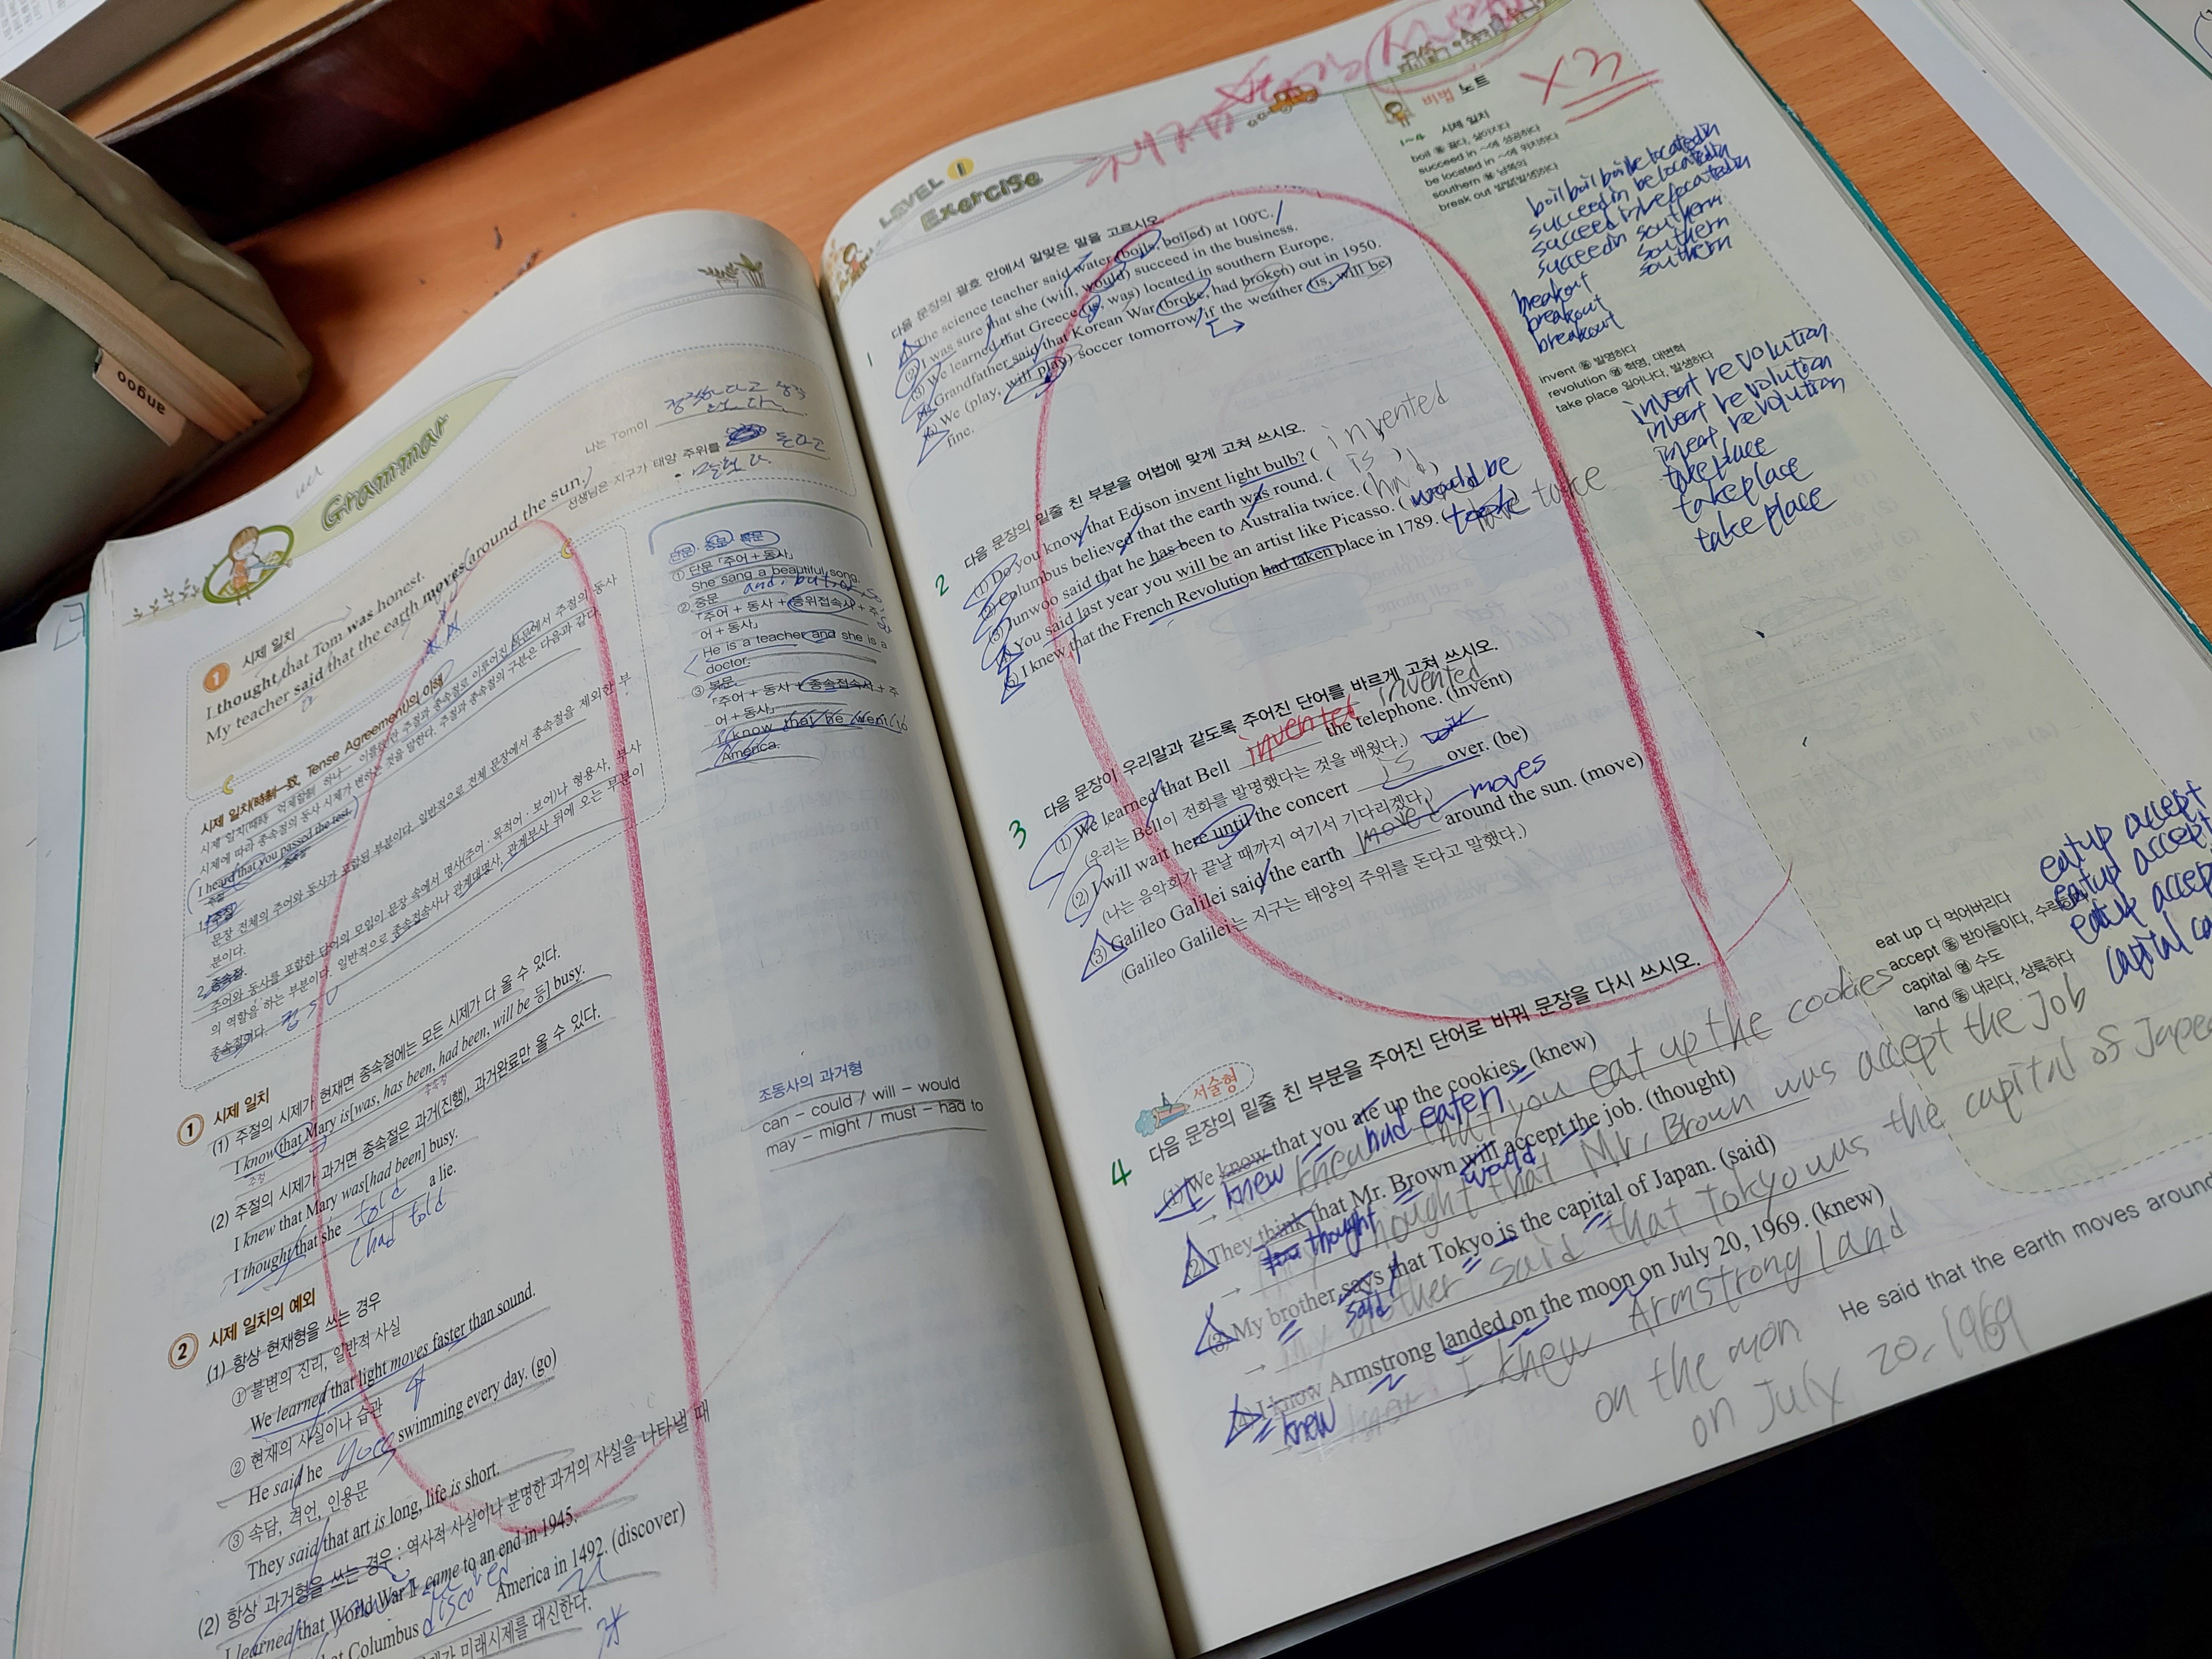 angoo
Grammar
1 시제 일치
I thought that Tom was honest.
My teacher said that the earth moves around the sun.
나는 Tom이
선생님은 지구가 태양 주위를 돈다고
시제 일치(時制一致, Tense Agreement)의 이해
I heard that you passed the test.
1. 주절
문장 전체의 주어와 동사가 포함된 부분이다. 일반적으로 전체 문장에서 종속절을 제외한 부
분이다.
2. 종속절
주어와 동사를 포함한 단어의 모임이 문장 속에서 명사(주어 · 목적어 · 보어)나 형용사, 부사
의 역할을 하는 부분이다. 일반적으로 종속접속사나 관계대명사, 관계부사 뒤에 오는 부분이
종속절이다.
단문 · 중문 · 복문
① 단문 「주어 + 동사」
She sang a beautiful song.
and, but, or, so
② 중문
「주어 + 동사 + 등위접속사 + 주
어 + 동사」
He is a teacher and she is a
doctor.
③ 복문
「주어 + 동사 + 종속접속사 + 주
어 + 동사」
I know that he went to
America.
① 시제 일치
(1) 주절의 시제가 현재면 종속절에는 모든 시제가 다 올 수 있다.
I know that Mary is[was, has been, had been, will be 등] busy.
(2) 주절의 시제가 과거면 종속절은 과거(진행), 과거완료만 올 수 있다.
I knew that Mary was[had been] busy.
I thought that she told a lie.
(had told
조동사의 과거형
can – could / will – would
may – might / must – had to
② 시제 일치의 예외
(1) 항상 현재형을 쓰는 경우
① 불변의 진리, 일반적 사실
We learned that light moves faster than sound.
② 현재의 사실이나 습관
He said he goes swimming every day. (go)
③ 속담, 격언, 인용문
They said that art is long, life is short.
(2) 항상 과거형을 쓰는 경우 : 역사적 사실이나 분명한 과거의 사실을 나타낼 때
I learned that World War II came to an end in 1945.
that Columbus discovered America in 1492. (discover)
미래시제를 대신한다.
LEVEL 1
Exercise
1 다음 문장의 괄호 안에서 알맞은 말을 고르시오.
(1) The science teacher said water (boils, boiled) at 100℃.
(2) I was sure that she (will, would) succeed in the business.
(3) We learned that Greece (is, was) located in southern Europe.
(4) Grandfather said that Korean War (broke, had broken) out in 1950.
(5) We (play, will play) soccer tomorrow if the weather (is, will be)
fine.
2 다음 문장의 밑줄 친 부분을 어법에 맞게 고쳐 쓰시오.
(1) Do you know that Edison invent light bulb? ( invented
(2) Columbus believed that the earth was round. ( is )
(3) Junwoo said that he has been to Australia twice. ( had )
(4) You said last year you will be an artist like Picasso. ( would be
(5) I knew that the French Revolution had taken place in 1789. ( took
3 다음 문장이 우리말과 같도록 주어진 단어를 바르게 고쳐 쓰시오.
invented
(1) We learned that Bell invented the telephone. (invent)
(우리는 Bell이 전화를 발명했다는 것을 배웠다.)
(2) I will wait here until the concert is over. (be)
(나는 음악회가 끝날 때까지 여기서 기다리겠다.)
moves
(3) Galileo Galilei said the earth moved around the sun. (move)
(Galileo Galilei는 지구는 태양의 주위를 돈다고 말했다.)
서술형
4 다음 문장의 밑줄 친 부분을 주어진 단어로 바꿔 문장을 다시 쓰시오.
(1) We know that you ate up the cookies. (knew)
knew had eaten
that you eat up the cookies
(2) They think that Mr. Brown will accept the job. (thought)
thought would
thought that Mr. Brown was accept the job
(3) My brother says that Tokyo is the capital of Japan. (said)
said
My brother said that Tokyo was the capital of
(4) I know Armstrong landed on the moon on July 20, 1969. (knew)
knew
I knew Armstrong land
on the mon
on July 20, 1969
He said that the earth moves around
비법 노트
X3
1~4 시제 일치
boil 동 끓다, 삶아지다
succeed in ~에 성공하다
be located in ~에 위치하다
southern 형 남쪽의
break out 발발[발생]하다
boil boil boil be located in
succeed in be located in
succeed in be located in
succeed in southern
southern
southern
breakout
breakout
breakout
invent 동 발명하다
revolution 명 혁명, 대변혁
take place 일어나다, 발생하다
invent revolution
invent revolution
invent revolution
take place
take place
take place
eat up 다 먹어버리다
accept 동 받아들이다, 수락하다
capital 명 수도
land 동 내리다, 상륙하다
eat up accept
eat up accept
eat up accept
capital